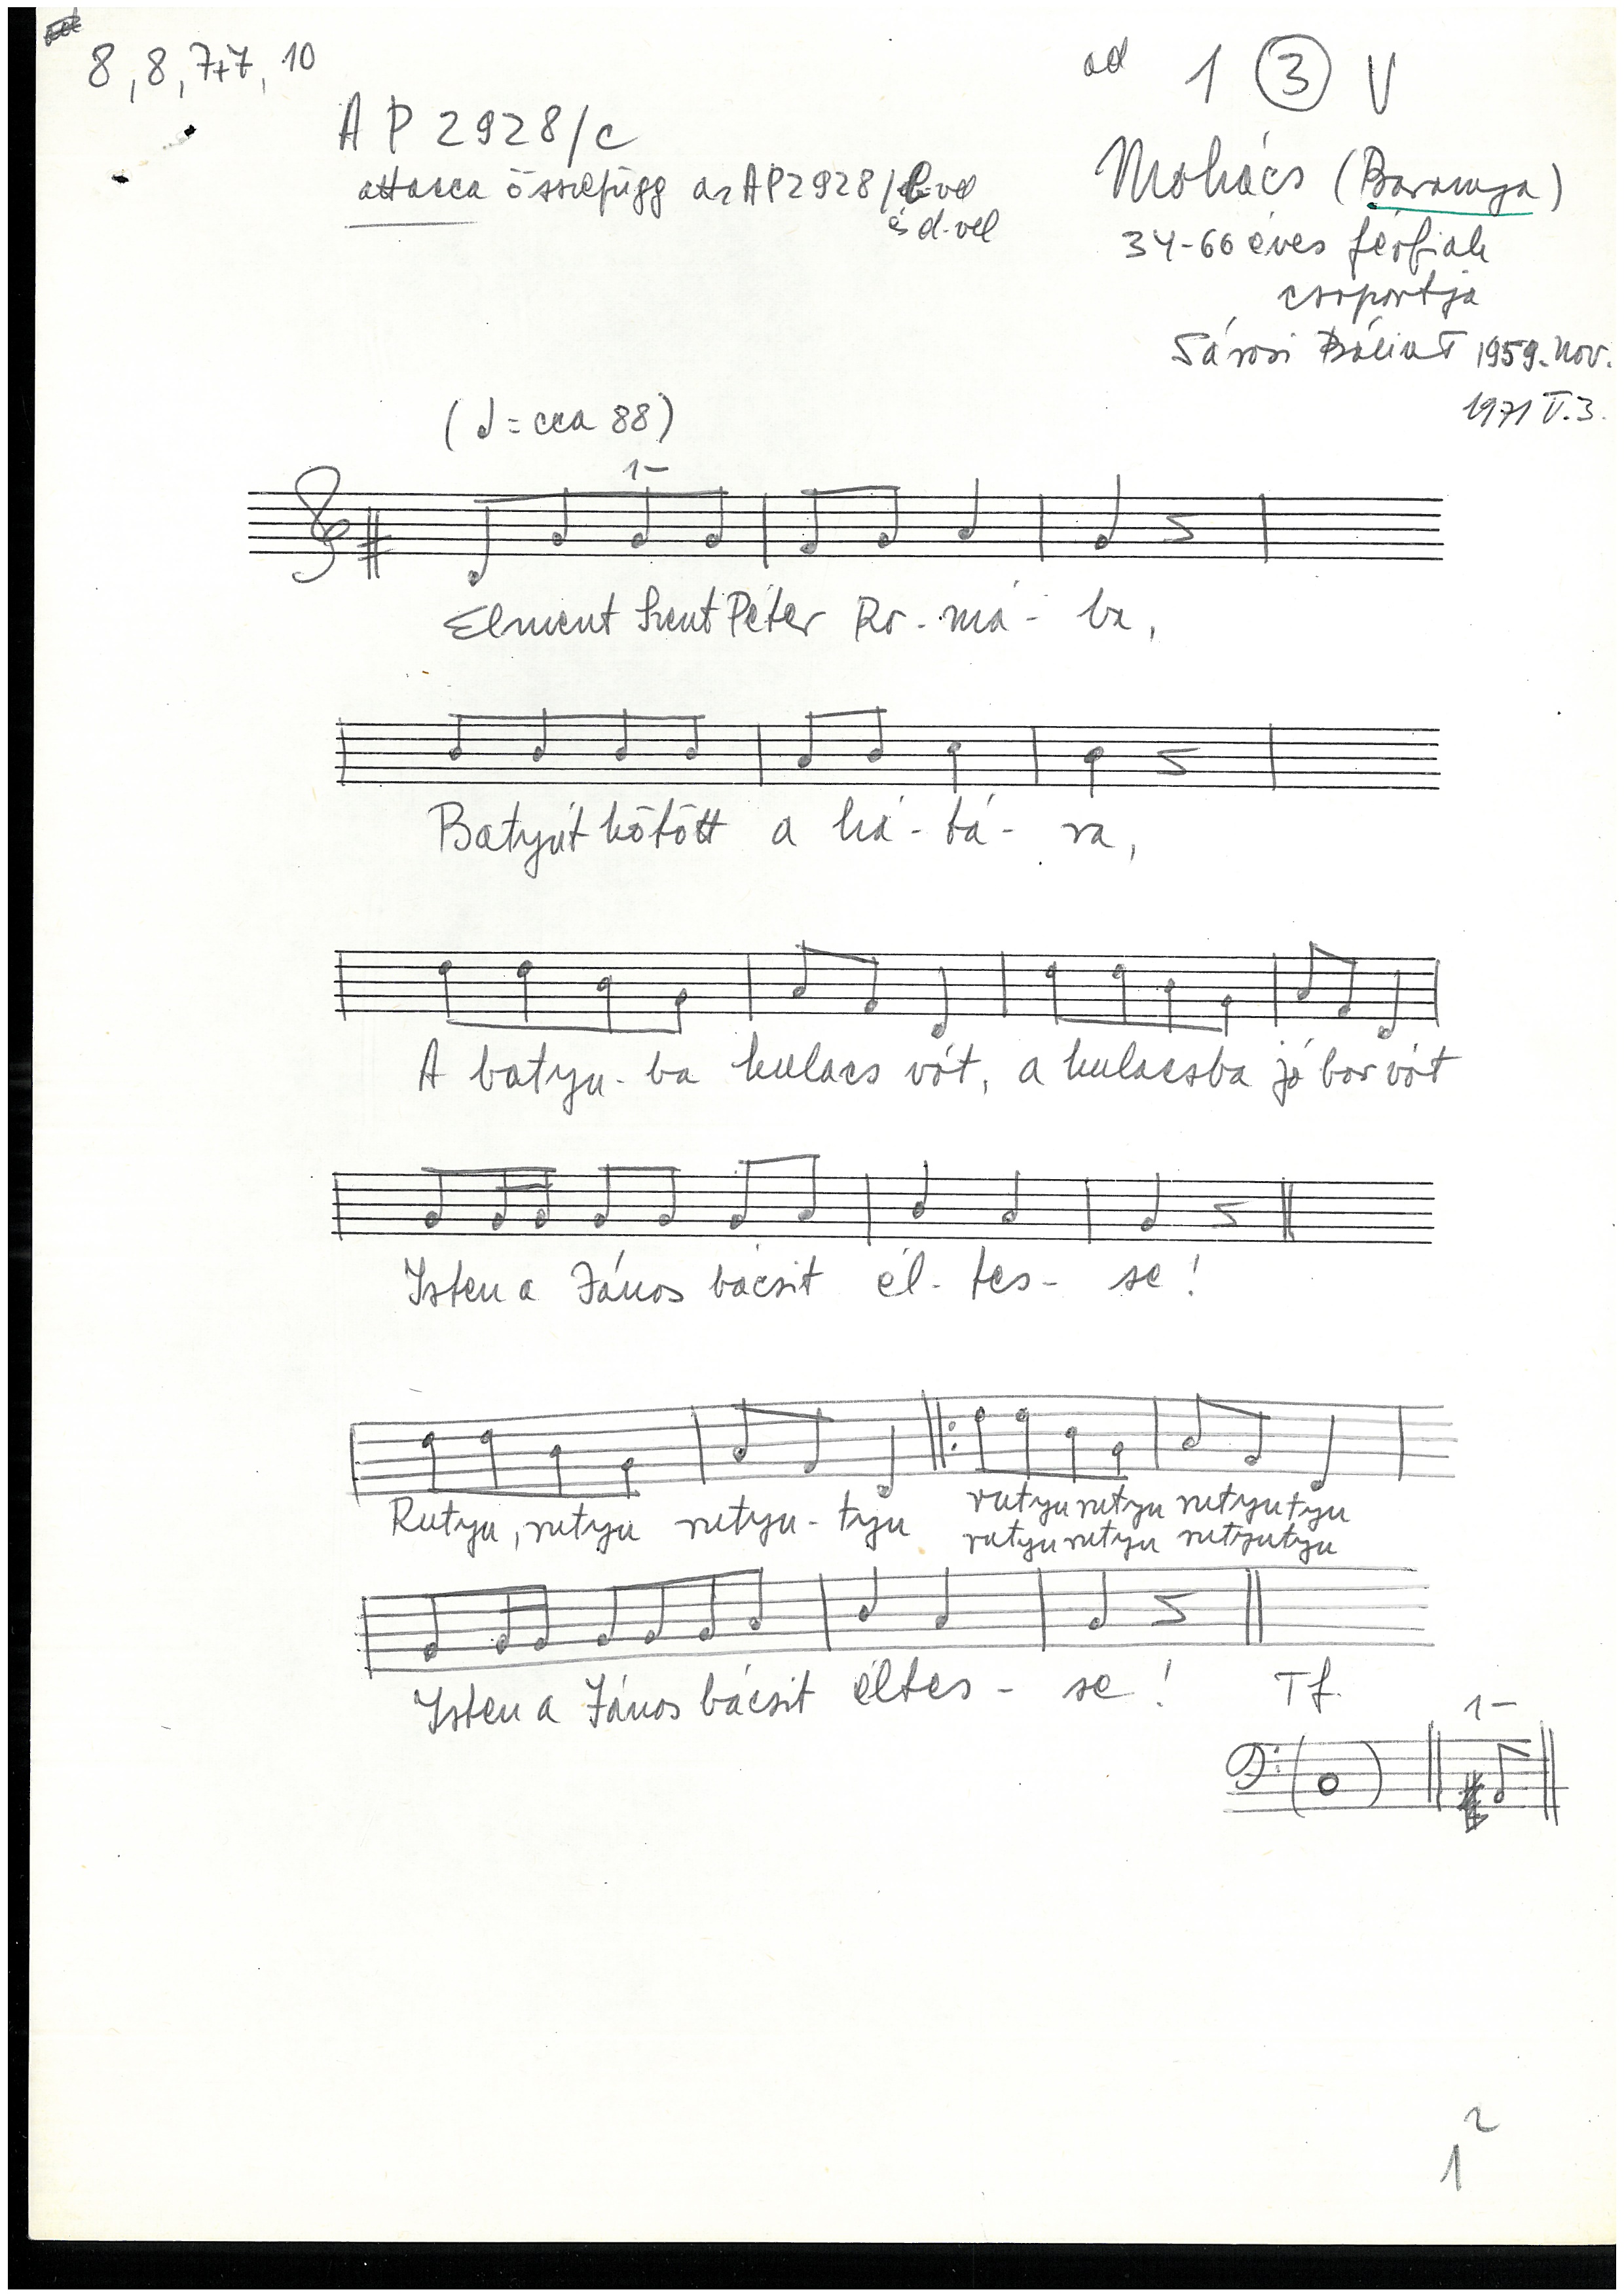 8, 8, 7+7, 10
ad 1 3 V
AP 2928/c
attacca összefügg az AP2928/b-vel
és d-vel
Mohács (Baranya)
34-60 éves férfiak
csoportja
Sárosi Bálint 1959. nov.
1971 V. 3.
(♩ = cca 88)
1-
Elment Szent Péter Ró-má-ba,
Batyut kötött a há-tá-ra,
A batyu-ba kulacs vót, a kulacsba jó bor vót
Isten a János bácsit él-tes-se!
Rutyu, rutyu rutyu-tyu rutyu rutyu rutyutyu
rutyu rutyu rutyutyu
Isten a János bácsit éltes-se!
Tf.
1-
2
1